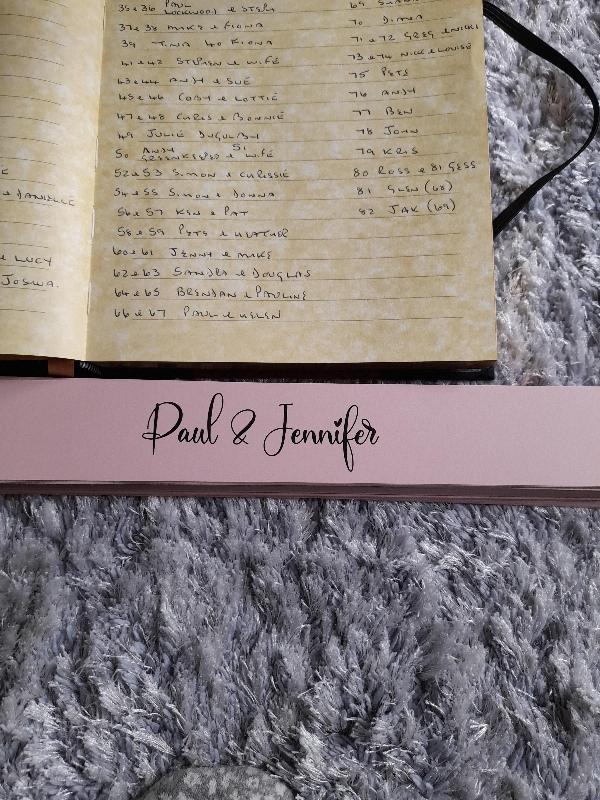 DANIELLE
& LUCY
JOSHUA.
35 & 36 PAUL LOCKWOOD & STEPH
37 & 38 MIKE & FIONA
39 TINA 40 FIONA
41 & 42 STEPHEN & WIFE
43 & 44 ANDY & SUE
45 & 46 COBY & LOTTIE
47 & 48 CHRIS & BONNIE
49 JULIE
50 ANDY GREENKEEPER & 51 WIFE
52 & 53 SIMON & CHRISSIE
54 & 55 SIMON & DONNA
56 & 57 KEN & PAT
58 & 59 PETE & HEATHER
60 & 61 JENNY & MIKE
62 & 63 SANDRA & DOUGLAS
64 & 65 BRENDAN & PAULINE
66 & 67 PAUL & HELEN
69
70 DIANA
71 & 72 GREG & NICKI
73 & 74 NICK & LOUISE
75 PETE
76 ANDY
77 BEN
78 JOHN
79 KRIS
80 ROSS & 81 GESS
81 GLEN (68)
82 JAK (69)
Paul & Jennifer